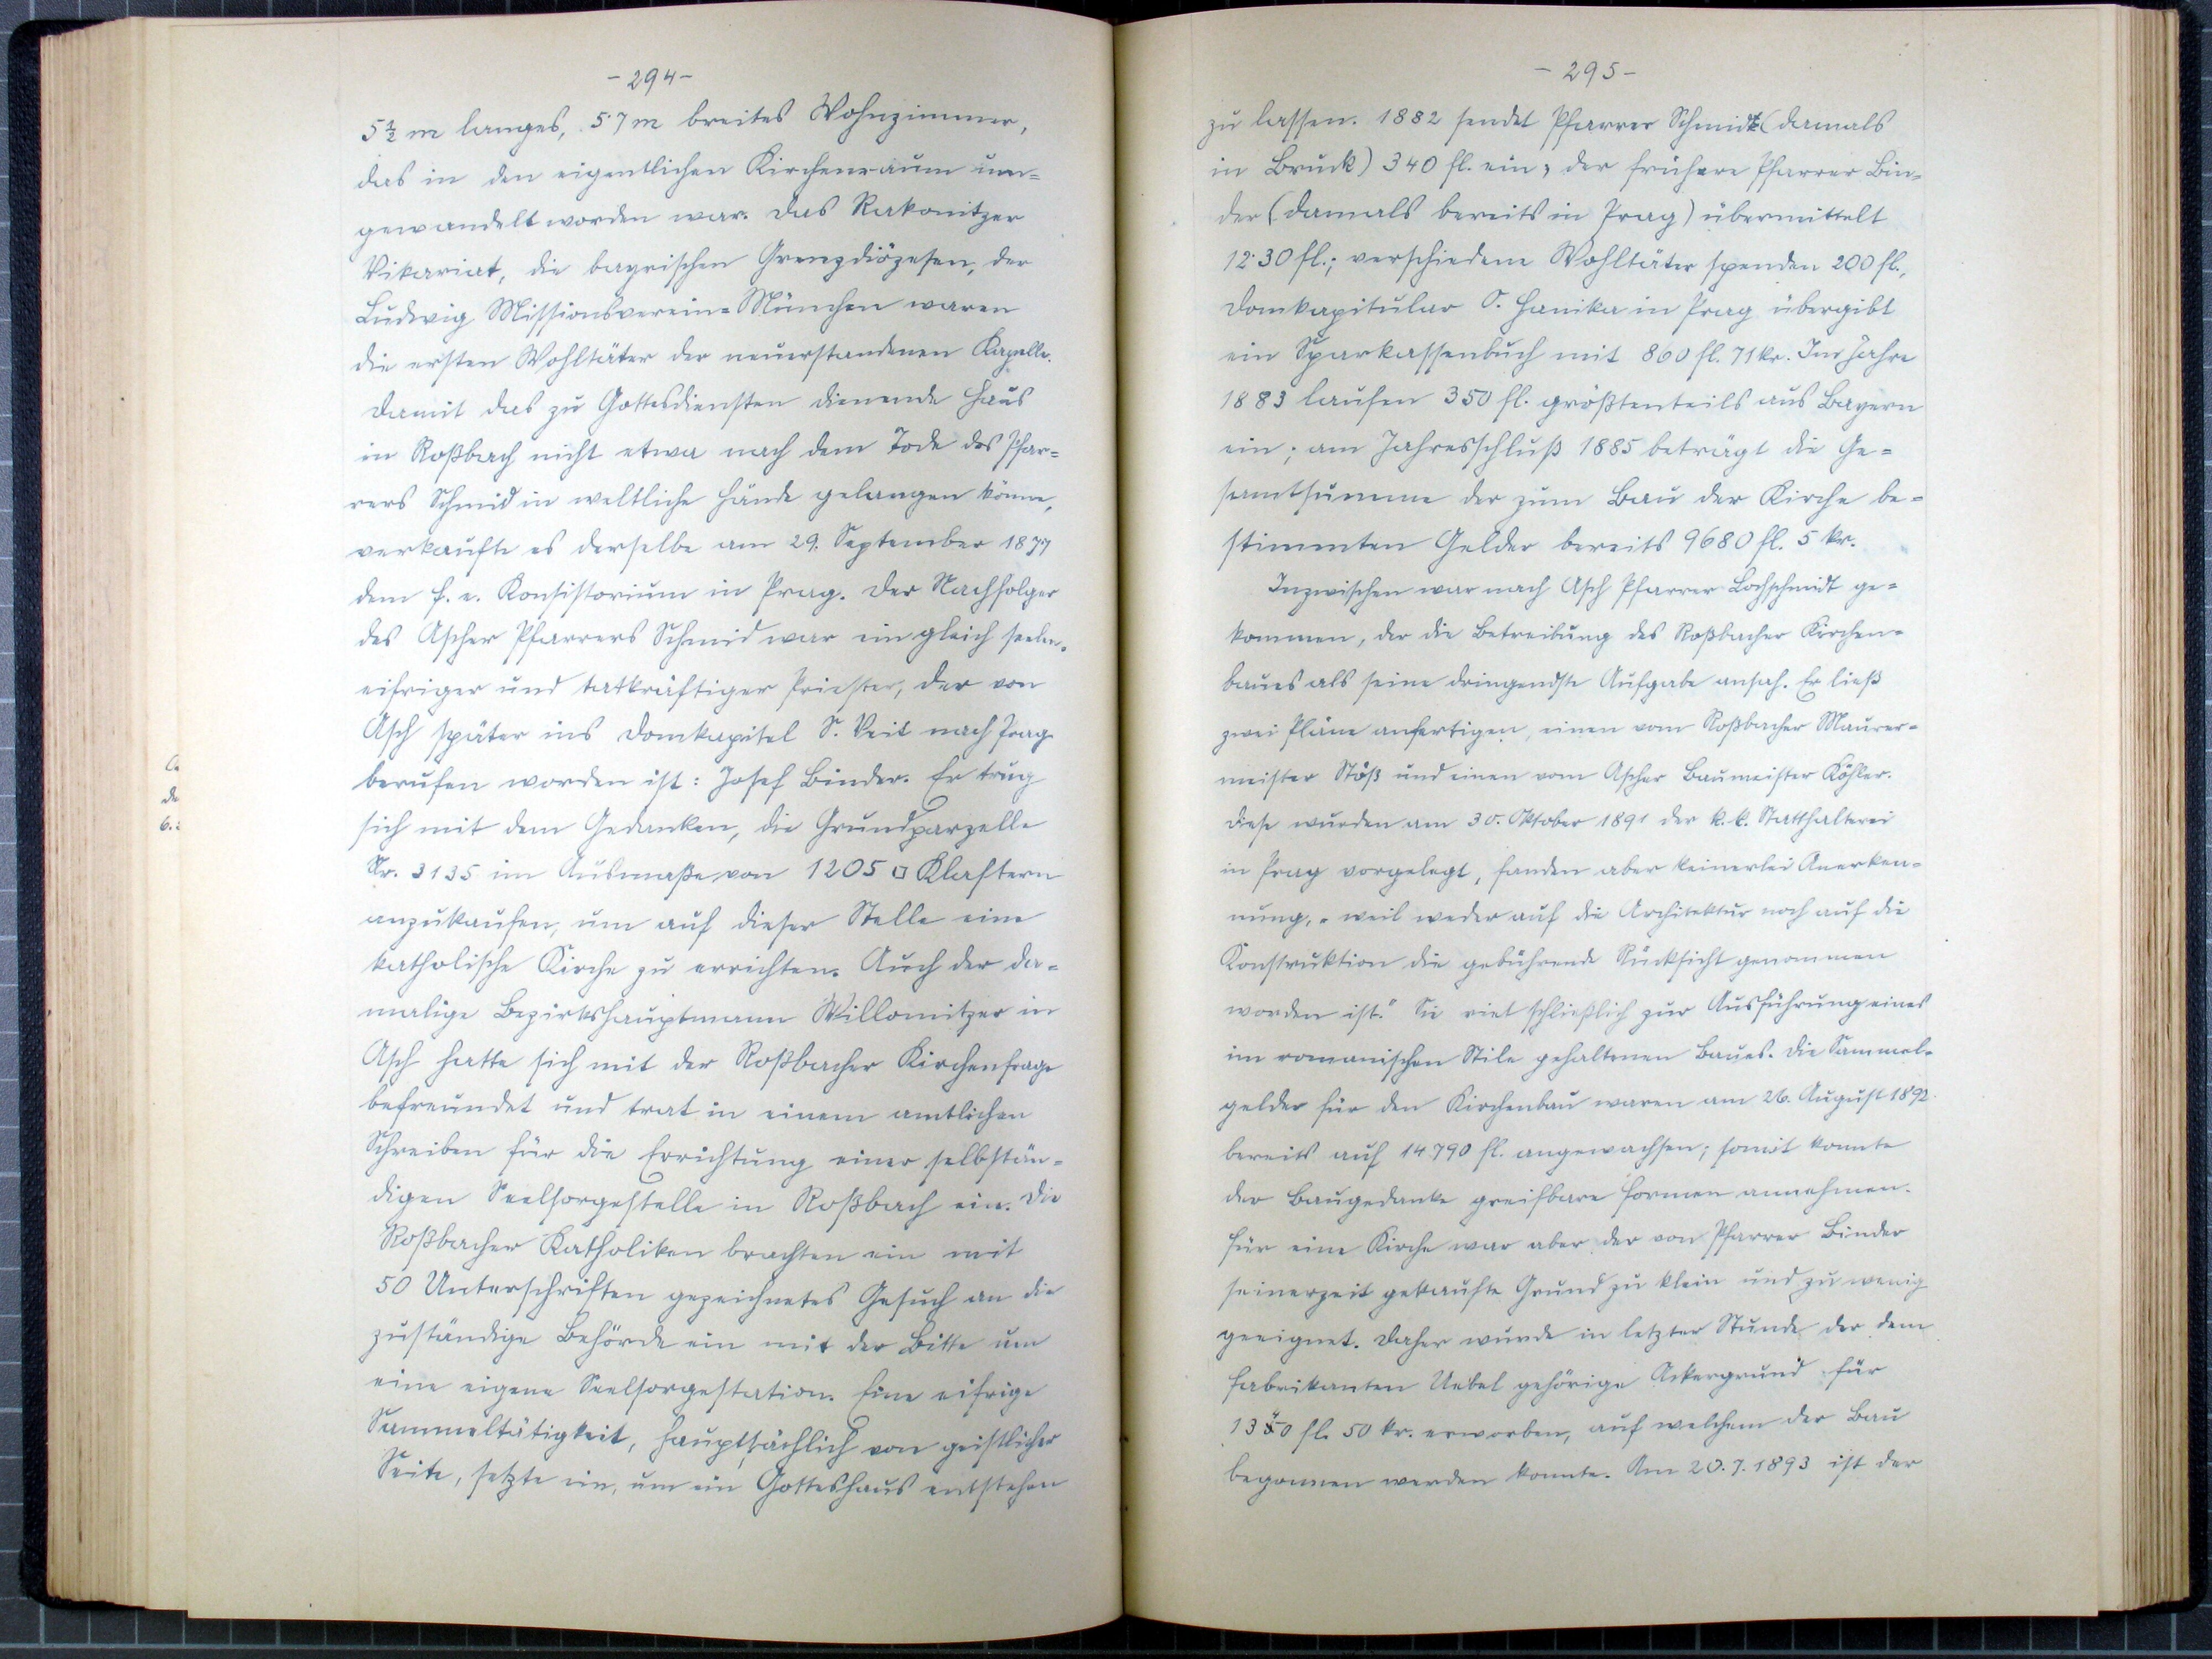 - 294 -
5½ m langes, 5·7 m breites Wohnzimmer,
das in den eigentlichen Kirchenraum um=
gewandelt worden war. Das Rakonitzer
Vikariat, die bayrischen Grenzdiözesen, der
Ludwig Missionsverein=München waren
die ersten Wohltäter der neuerstandenen Kapelle.
Damit das zu Gottesdiensten dienende Haus
in Roßbach nicht etwa nach dem Tode des Pfar=
rers Schmid in weltliche Hände gelangen könne,
verkaufte es derselbe am 29. September 1877
dem f. e. Konsistorium in Prag. Der Nachfolger
des Ascher Pfarrers Schmid war ein gleich seelen=
eifriger und tatkräftiger Priester, der von
Asch später ins Domkapitel S. Veit nach Prag
berufen worden ist: Josef Binder. Er trug
sich mit dem Gedanken, die Grundparzelle
Nr. 3135 im Ausmaße von 1205 □ Klaftern
anzukaufen, um auf dieser Stelle eine
katholische Kirche zu errichten. Auch der da=
malige Bezirkshauptmann Willomitzer in
Asch hatte sich mit der Roßbacher Kirchenfrage
befreundet und trat in einem amtlichen
Schreiben für die Errichtung einer selbstän=
digen Seelsorgestelle in Roßbach ein. Die
Roßbacher Katholiken brachten ein mit
50 Unterschriften gezeichnetes Gesuch an die
zuständige Behörde ein mit der Bitte um
eine eigene Seelsorgestation. Eine eifrige
Sammeltätigkeit, hauptsächlich von geistlicher
Seite, setzte ein, um ein Gotteshaus entstehen
- 295 -
zu lassen. 1882 sendet Pfarrer Schmidt (damals
in Bruck) 340 fl. ein; der frühere Pfarrer Bin=
der (damals bereits in Prag) übermittelt
12·30 fl.; verschiedene Wohltäter spenden 200 fl.,
Domkapitular O. Hanika in Prag übergibt
ein Sparkassenbuch mit 860 fl. 71 kr. Im Jahre
1883 laufen 350 fl. größtenteils aus Bayern
ein; am Jahresschluß 1885 beträgt die Ge=
samtsumme der zum Bau der Kirche be=
stimmten Gelder bereits 9680 fl. 5 kr.
Inzwischen war nach Asch Pfarrer Lochschmidt ge=
kommen, der die Betreibung des Roßbacher Kirchen=
baues als seine dringendste Aufgabe ansah. Er ließ
zwei Pläne anfertigen, einen vom Roßbacher Maurer=
meister Stöß und einen vom Ascher Baumeister Köhler.
Diese wurden am 30. Oktober 1891 der k. k. Statthalterei
in Prag vorgelegt, fanden aber keinerlei Anerken=
nung, „weil weder auf die Architektur noch auf die
Konstruktion die gebührende Rücksicht genommen
worden ist." Sie riet schließlich zur Ausführung eines
im romanischen Stile gehaltenen Baues. Die Sammel=
gelder für den Kirchenbau waren am 26. August 1892
bereits auf 14790 fl. angewachsen; somit konnte
der Baugedanke greifbare Formen annehmen.
Für eine Kirche war aber der von Pfarrer Binder
seinerzeit gekaufte Grund zu klein und zu wenig
geeignet. Daher wurde in letzter Stunde der dem
Fabrikanten Uebel gehörige Ackergrund für
fl. 50 kr. erworben, auf welchem der Bau
begonnen werden konnte. Am 20. 7. 1893 ist der